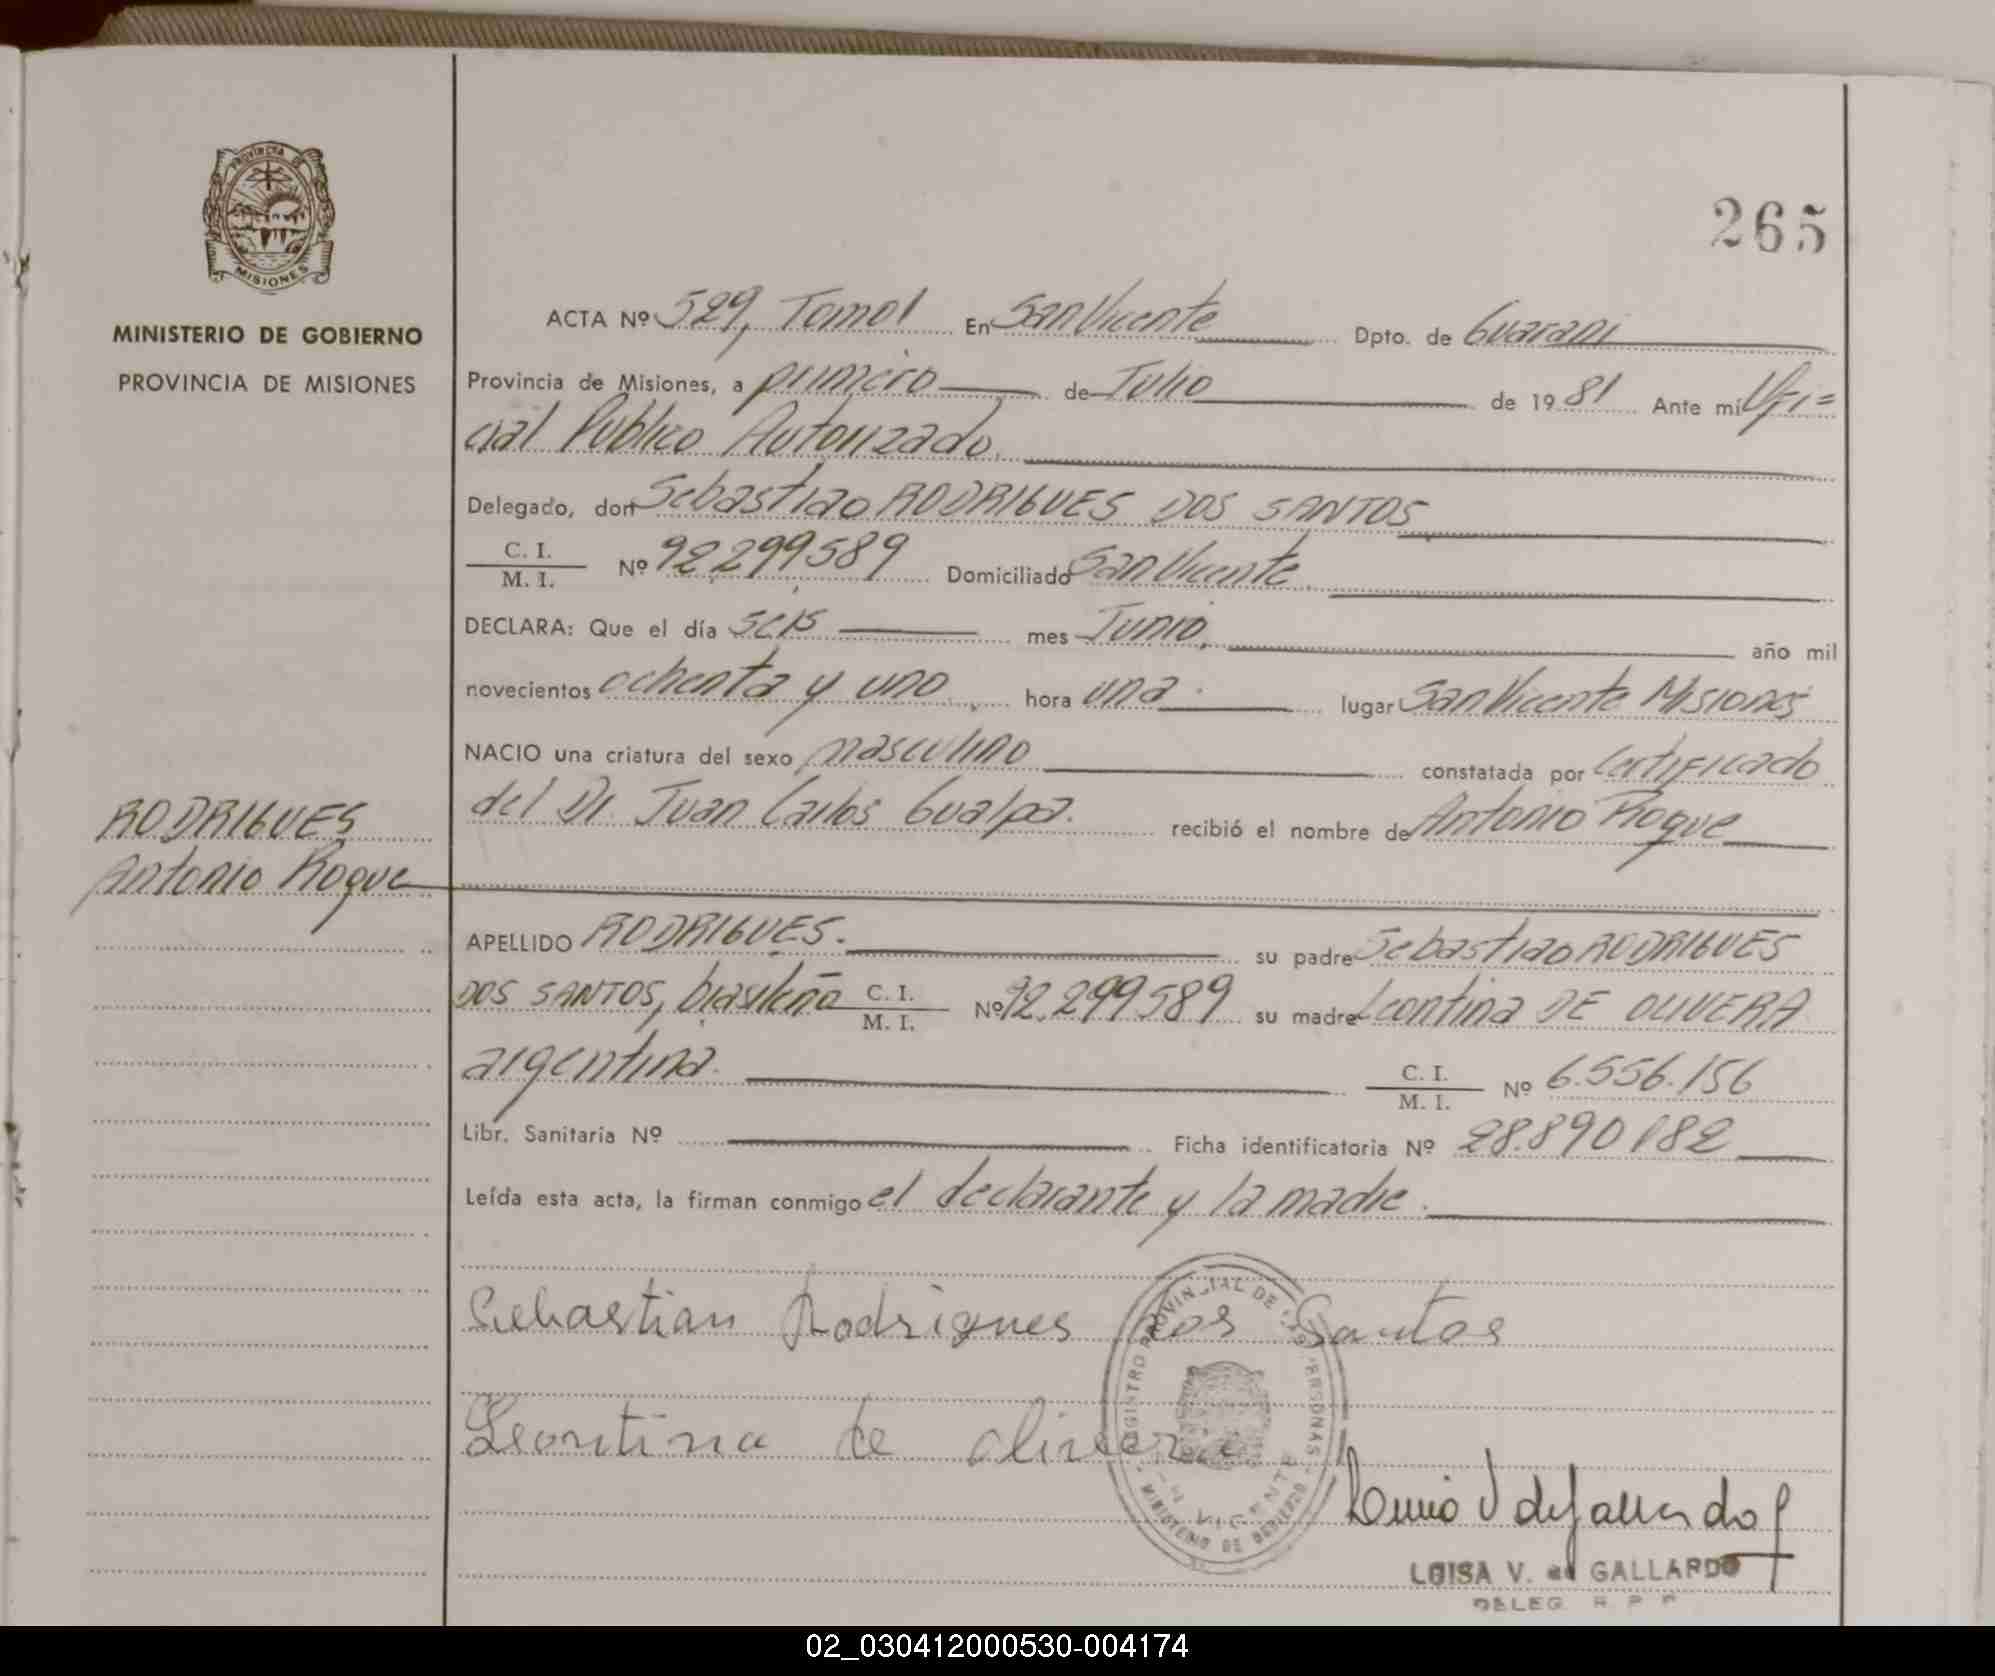 PROVINCIA DE
MISIONES
MINISTERIO DE GOBIERNO
PROVINCIA DE MISIONES
265
ACTA Nº 529, Tomo I En San Vicente Dpto. de Guarani
Provincia de Misiones, a primero de Julio de 1981 Ante mi Ofi=
cial Publico Autorizado.
Delegado, don Sebastiao RODRIGUES DOS SANTOS
C. I.
M. I. Nº 92.299.589 Domiciliado San Vicente
DECLARA: Que el día seis mes Junio, año mil
novecientos ochenta y uno hora una. lugar San Vicente Misiones
NACIO una criatura del sexo masculino constatada por Certificado
del Dr. Juan Carlos Gualpa. recibió el nombre de Antonio Roque
RODRIGUES
Antonio Roque
APELLIDO RODRIGUES. su padre Sebastiao RODRIGUES
DOS SANTOS, brasileño C. I. M. I. Nº 92.299.589 su madre Leontina DE OLIVERA
argentina. C. I. M. I. Nº 6.556.156
Libr. Sanitaria Nº Ficha identificatoria Nº 28.890.182
Leída esta acta, la firman conmigo el declarante y la madre.
Sebastian Rodrigues dos Santos
Leontina de olivera
REGISTRO PROVINCIAL DE LAS PERSONAS
MINISTERIO DE GOBIERNO
LUISA V. de GALLARDO
DELEG. R. P. P.
02_030412000530-004174